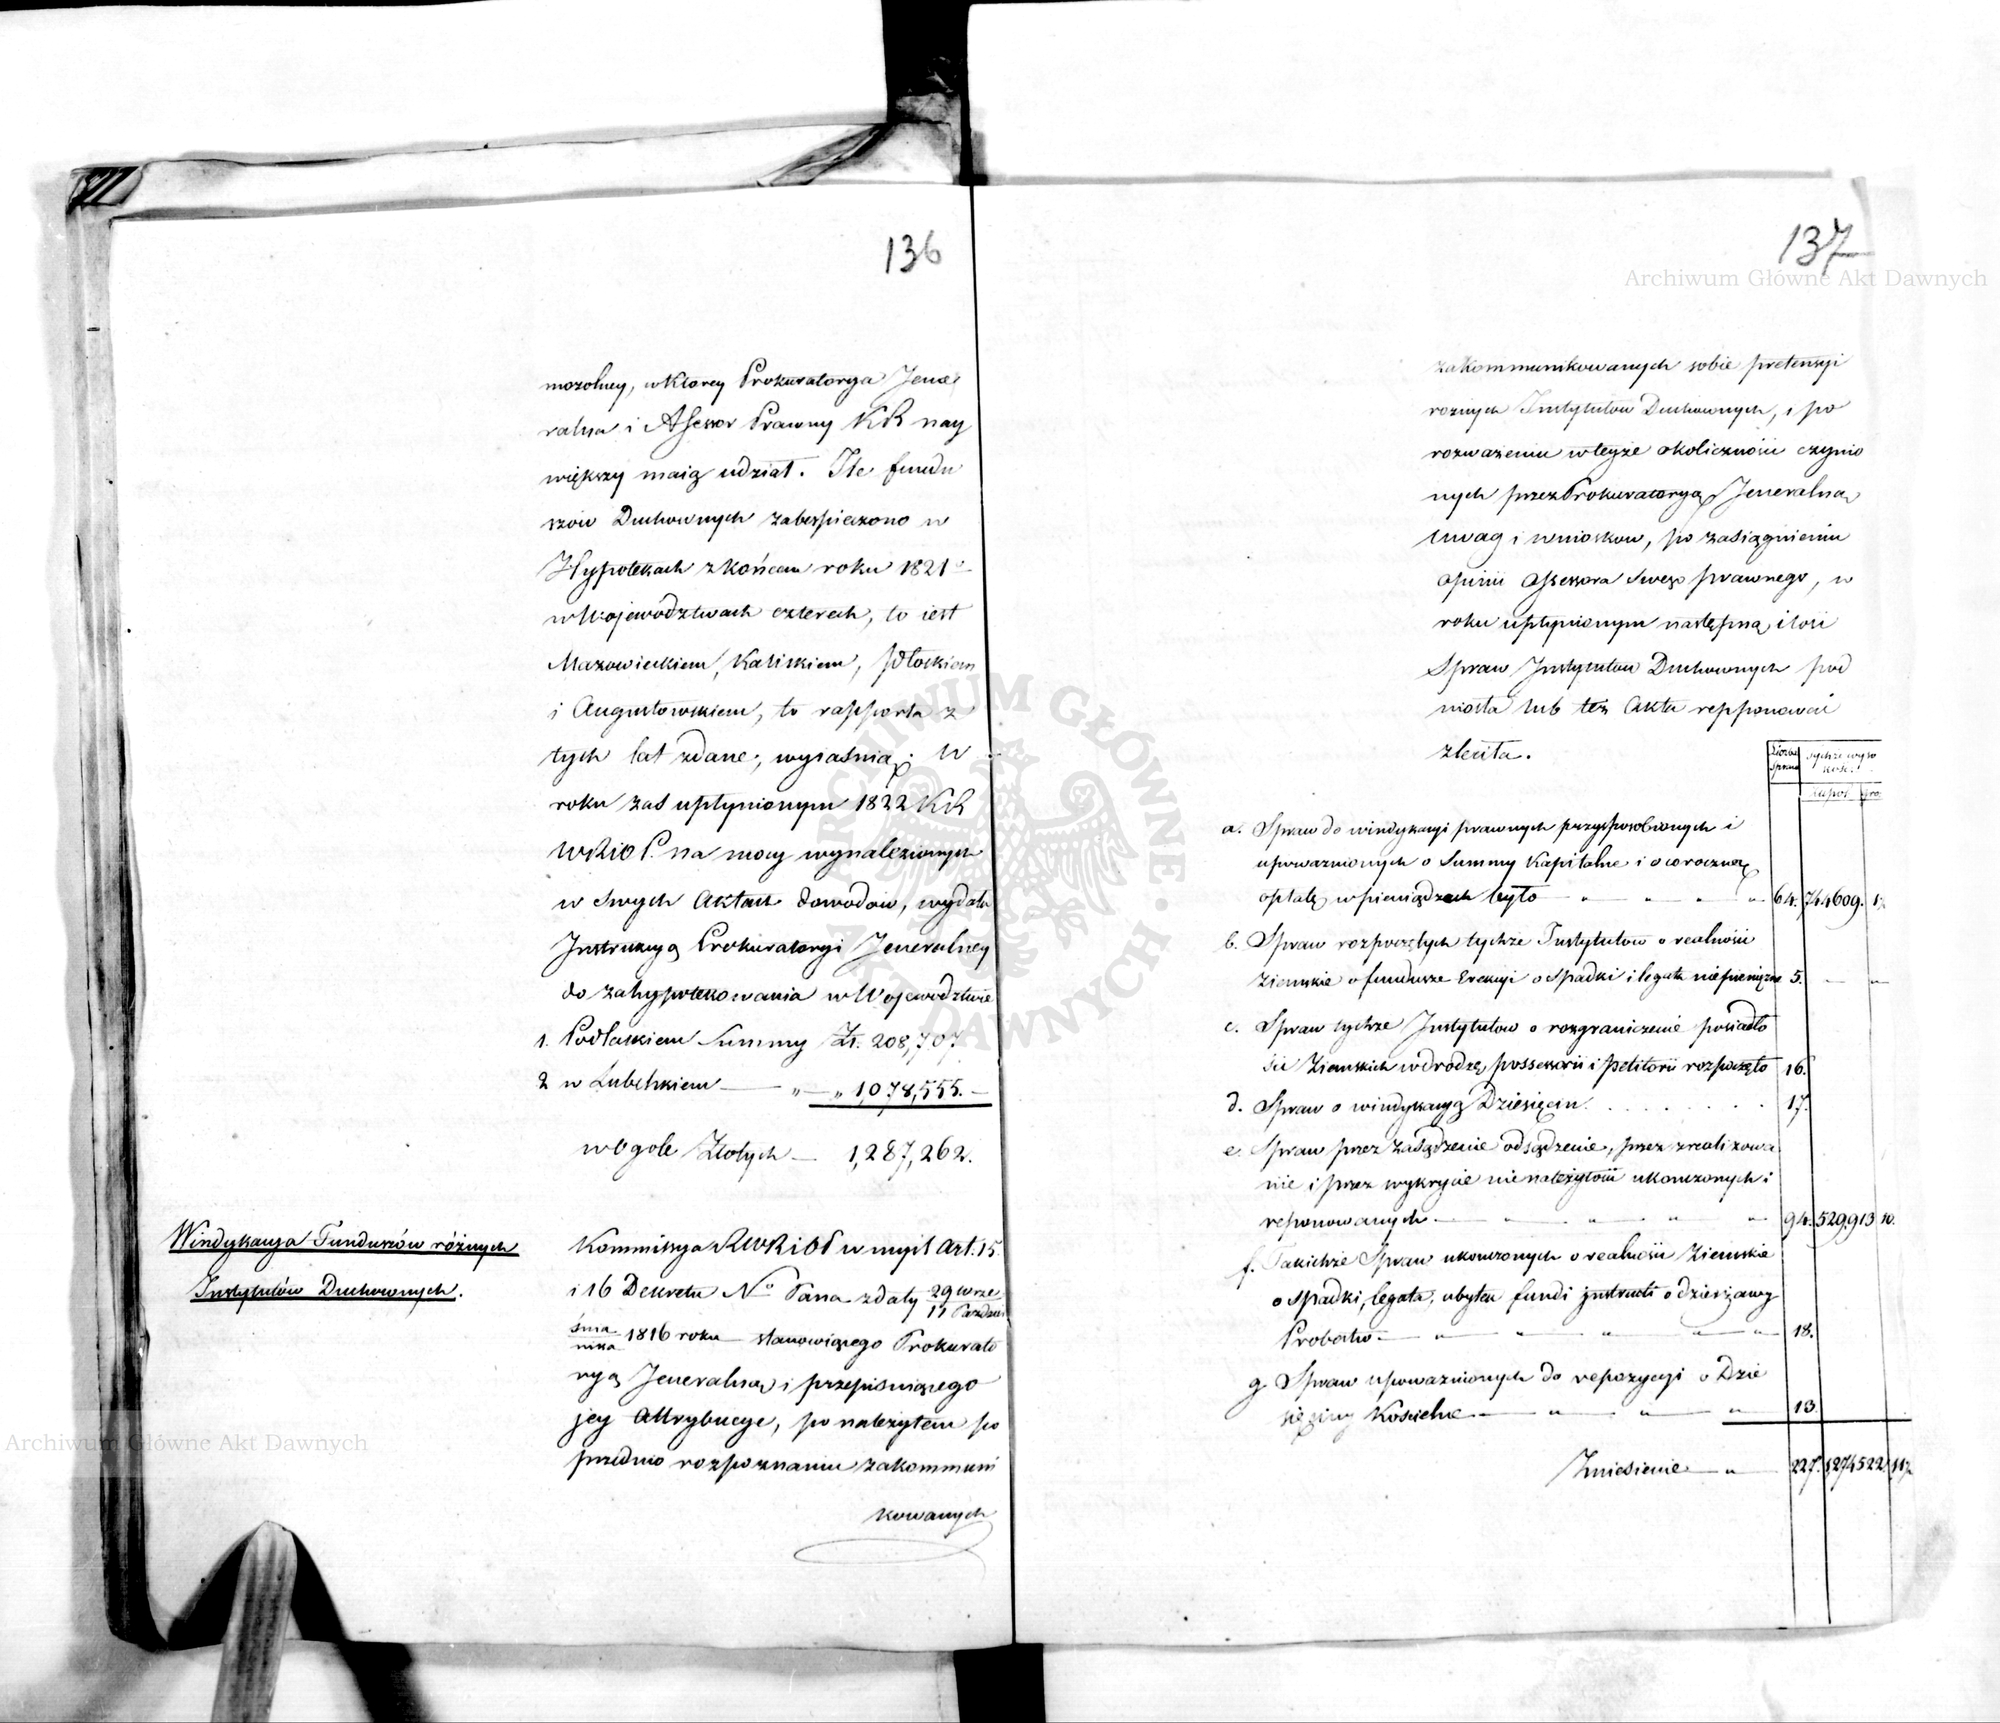 136
mozolney, w ktorey Prokuratorya Jene
ralna i Assessor Prawny KR nay
większy maią udział. Ile fundu
szów Duchownych zabespieczono w
Hypotekach z końcem roku 1821º
w Województwach czterech, to iest
Mazowieckiem, Kaliskiem, Płockiem
i Augustowskiem, to rapporta z
tych lat zdane, wyiaśnią. W
roku zaś upłynionym 1822 KR
WRiOP. na mocy wynalezionych
w swych Aktach dowodów, wydała
Instrukcyą Prokuratoryi Jeneralney
do zahypotekowania w Województwie
1. Podlaskiem Summy Zł. 208,707
2 w Lubelskiem — „ — „ 1,078,555. —
w Ogole Złotych — 1,287,262.
Windykacya Funduszów różnych
Instytutów Duchownych.
Kommissya RWRiOP w myśl Art: 15.
i 16 Dekretu N° Pana z daty 29 Wrze
11 Paździer
śnia
nika 1816 roku stanowiącego Prokurato
ryą Jeneralną i przepisuiącego
jey Attrybucye, po należytem po
przednio rozpoznaniu zakommuni
kowanych
137
zakommunikowanych sobie pretensyi
roznych Instytutow Duchownych, i po
rozważeniu w teyże okoliczności czynio
nych przez Prokuratoryą Jeneralną
uwag i wnioskow, po zasiągnieniu
opinii Assessora swego prawnego, w
roku upłynionym następną ilość
Spraw Instytutow Duchownych pod
niosła lub też Akta repponować
zleciła.
Liczba
Spraw
tychże wyso
kość
Złpol. gro.
a. Spraw do windykacyi prawnych przysposobionych i
upoważnionych o Summy Kapitalne i o coroczną
opłatę w pieniądzach było — „ „ „ „ 64. 744609. 1½
b. Spraw rozpoczętych tychże Instytutow o realności
Ziemskie o fundusze Erekcyi o Spadki i legata niepieniężne 5. — „
c. Spraw tychże Instytutow o rozgraniczenie posiadło
ści Ziemskich w drodze possessorii i petitorii rozpoczęto 16.
d. Spraw o windykacyą Dziesięcin . . . . . . . 17.
e. Spraw przez zasądzenie odsądzenie, przez zrealizowa
nie i przez wykrycie nienależytości ukończonych i
reponowanych — „ „ „ „ „ 94. 529,913 10.
f. Takichże Spraw ukończonych o realności Ziemskie
o Spadki, legata, ubytek fundi instructi o dzierżawy
Probostw — „ „ „ „ „ 18.
g Spraw upoważnionych do repozycyi o Dzie
sięciny Kościelne — „ „ „ 13.
Zniesienie — „ — 227. 1274522 11½
Archiwum Główne Akt Dawnych
Archiwum Główne Akt Dawnych
ARCHIWUM GŁÓWNE • AKT DAWNYCH •